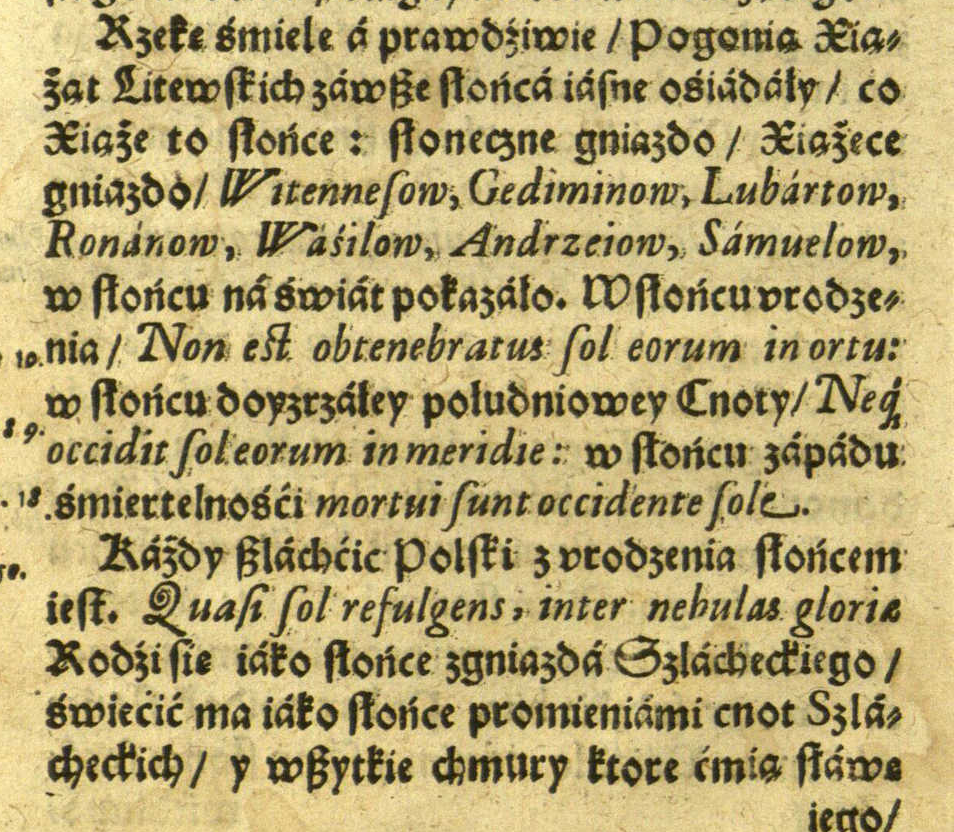 Rzekę śmiele á prawdźiwie / Pogonia Xią⸗
żąt Litewskich záwſze słońcá iáſne ośiádáły / co
Xiąże to słońce : słoneczne gniazdo / Xiążęce
gniazdo / Witenneſow, Gediminow, Lubártow,
Ronánow, Wáśilow, Andrzeiow, Sámuelow,
w słońcu ná świát pokazáło. W słońcu vrodze⸗
10. nia / Non est obtenebratus ſol eorum in ortu:
w słońcu doyzrzáłey południowey Cnoty / Neq́
8 9. occidit ſol eorum in meridie: w słońcu zápádu
18. śmiertelnośći mortui ſunt occidente ſole.
Káżdy ſzláchćic Polski z vrodzenia słońcem
iest. Quaſi ſol refulgens, inter nebulas gloriæ
Rodźi się iáko słońce z gniazdá Szlácheckiego /
świećić ma iáko słońce promieniámi cnot Szlá⸗
checkich / y wſzytkie chmury ktore ćmią sławę
iego /